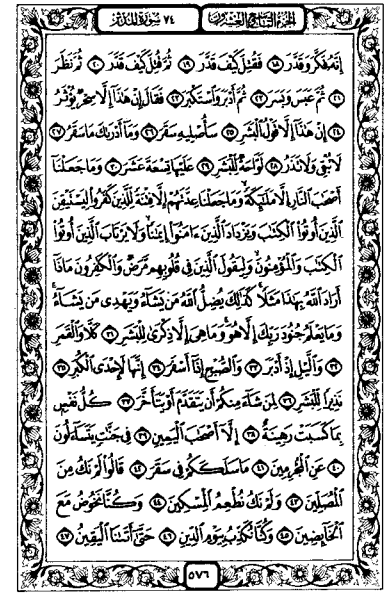 الجزء التاسع والعشرون ٧٤ سورة المدثر
إِنَّهُۥ فَكَّرَ وَقَدَّرَ ١٨ فَقُتِلَ كَيْفَ قَدَّرَ ١٩ ثُمَّ قُتِلَ كَيْفَ قَدَّرَ ٢٠ ثُمَّ نَظَرَ
٢١ ثُمَّ عَبَسَ وَبَسَرَ ٢٢ ثُمَّ أَدْبَرَ وَٱسْتَكْبَرَ ٢٣ فَقَالَ إِنْ هَٰذَآ إِلَّا سِحْرٌ يُؤْثَرُ
٢٤ إِنْ هَٰذَآ إِلَّا قَوْلُ ٱلْبَشَرِ ٢٥ سَأُصْلِيهِ سَقَرَ ٢٦ وَمَآ أَدْرَىٰكَ مَا سَقَرُ ٢٧
لَا تُبْقِى وَلَا تَذَرُ ٢٨ لَوَّاحَةٌ لِّلْبَشَرِ ٢٩ عَلَيْهَا تِسْعَةَ عَشَرَ ٣٠ وَمَا جَعَلْنَآ
أَصْحَٰبَ ٱلنَّارِ إِلَّا مَلَٰٓئِكَةً وَمَا جَعَلْنَا عِدَّتَهُمْ إِلَّا فِتْنَةً لِّلَّذِينَ كَفَرُوا۟ لِيَسْتَيْقِنَ
ٱلَّذِينَ أُوتُوا۟ ٱلْكِتَٰبَ وَيَزْدَادَ ٱلَّذِينَ ءَامَنُوٓا۟ إِيمَٰنًا وَلَا يَرْتَابَ ٱلَّذِينَ أُوتُوا۟
ٱلْكِتَٰبَ وَٱلْمُؤْمِنُونَ وَلِيَقُولَ ٱلَّذِينَ فِى قُلُوبِهِم مَّرَضٌ وَٱلْكَٰفِرُونَ مَاذَآ
أَرَادَ ٱللَّهُ بِهَٰذَا مَثَلًا كَذَٰلِكَ يُضِلُّ ٱللَّهُ مَن يَشَآءُ وَيَهْدِى مَن يَشَآءُ
وَمَا يَعْلَمُ جُنُودَ رَبِّكَ إِلَّا هُوَ وَمَا هِىَ إِلَّا ذِكْرَىٰ لِلْبَشَرِ ٣١ كَلَّا وَٱلْقَمَرِ
٣٢ وَٱلَّيْلِ إِذْ أَدْبَرَ ٣٣ وَٱلصُّبْحِ إِذَآ أَسْفَرَ ٣٤ إِنَّهَا لَإِحْدَى ٱلْكُبَرِ ٣٥
نَذِيرًا لِّلْبَشَرِ ٣٦ لِمَن شَآءَ مِنكُمْ أَن يَتَقَدَّمَ أَوْ يَتَأَخَّرَ ٣٧ كُلُّ نَفْسٍۭ
بِمَا كَسَبَتْ رَهِينَةٌ ٣٨ إِلَّآ أَصْحَٰبَ ٱلْيَمِينِ ٣٩ فِى جَنَّٰتٍ يَتَسَآءَلُونَ
٤٠ عَنِ ٱلْمُجْرِمِينَ ٤١ مَا سَلَكَكُمْ فِى سَقَرَ ٤٢ قَالُوا۟ لَمْ نَكُ مِنَ
ٱلْمُصَلِّينَ ٤٣ وَلَمْ نَكُ نُطْعِمُ ٱلْمِسْكِينَ ٤٤ وَكُنَّا نَخُوضُ مَعَ
ٱلْخَآئِضِينَ ٤٥ وَكُنَّا نُكَذِّبُ بِيَوْمِ ٱلدِّينِ ٤٦ حَتَّىٰٓ أَتَىٰنَا ٱلْيَقِينُ ٤٧
٥٧٦